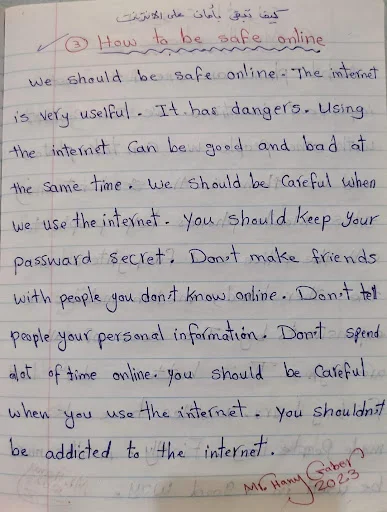 كيف تبقى بأمان على الانترنت
③ How to be safe online
we should be safe online. The internet
is very uselful. It has dangers. Using
the internet Can be good and bad at
the same time. we should be Careful when
we use the internet. you should keep your
passward secret. Don't make friends
with people you don't know online. Don't tell
people your personal information. Don't spend
alot of time online. you should be Careful
when you use the internet. you shouldn't
be addicted to the internet.
Mr. Hany Saber
2023